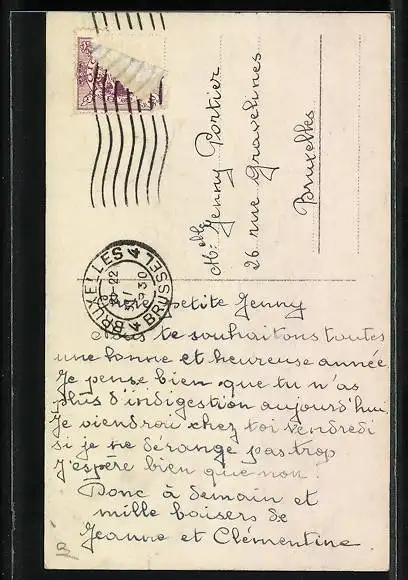 Melle Jenny Portier
26 rue Gravelines
Bruxelles
BRUXELLES 4 BRUSSEL 4
Ma petite Jenny
Nous te souhaitons toutes
une bonne et heureuse année
Je pense bien que tu n'as
plus d'indigestion aujourd'hui.
Je viendrai chez toi vendredi
si je ne dérange pas trop
J'espère bien que non!
Donc à demain et
mille baisers de
Jeanne et Clementine